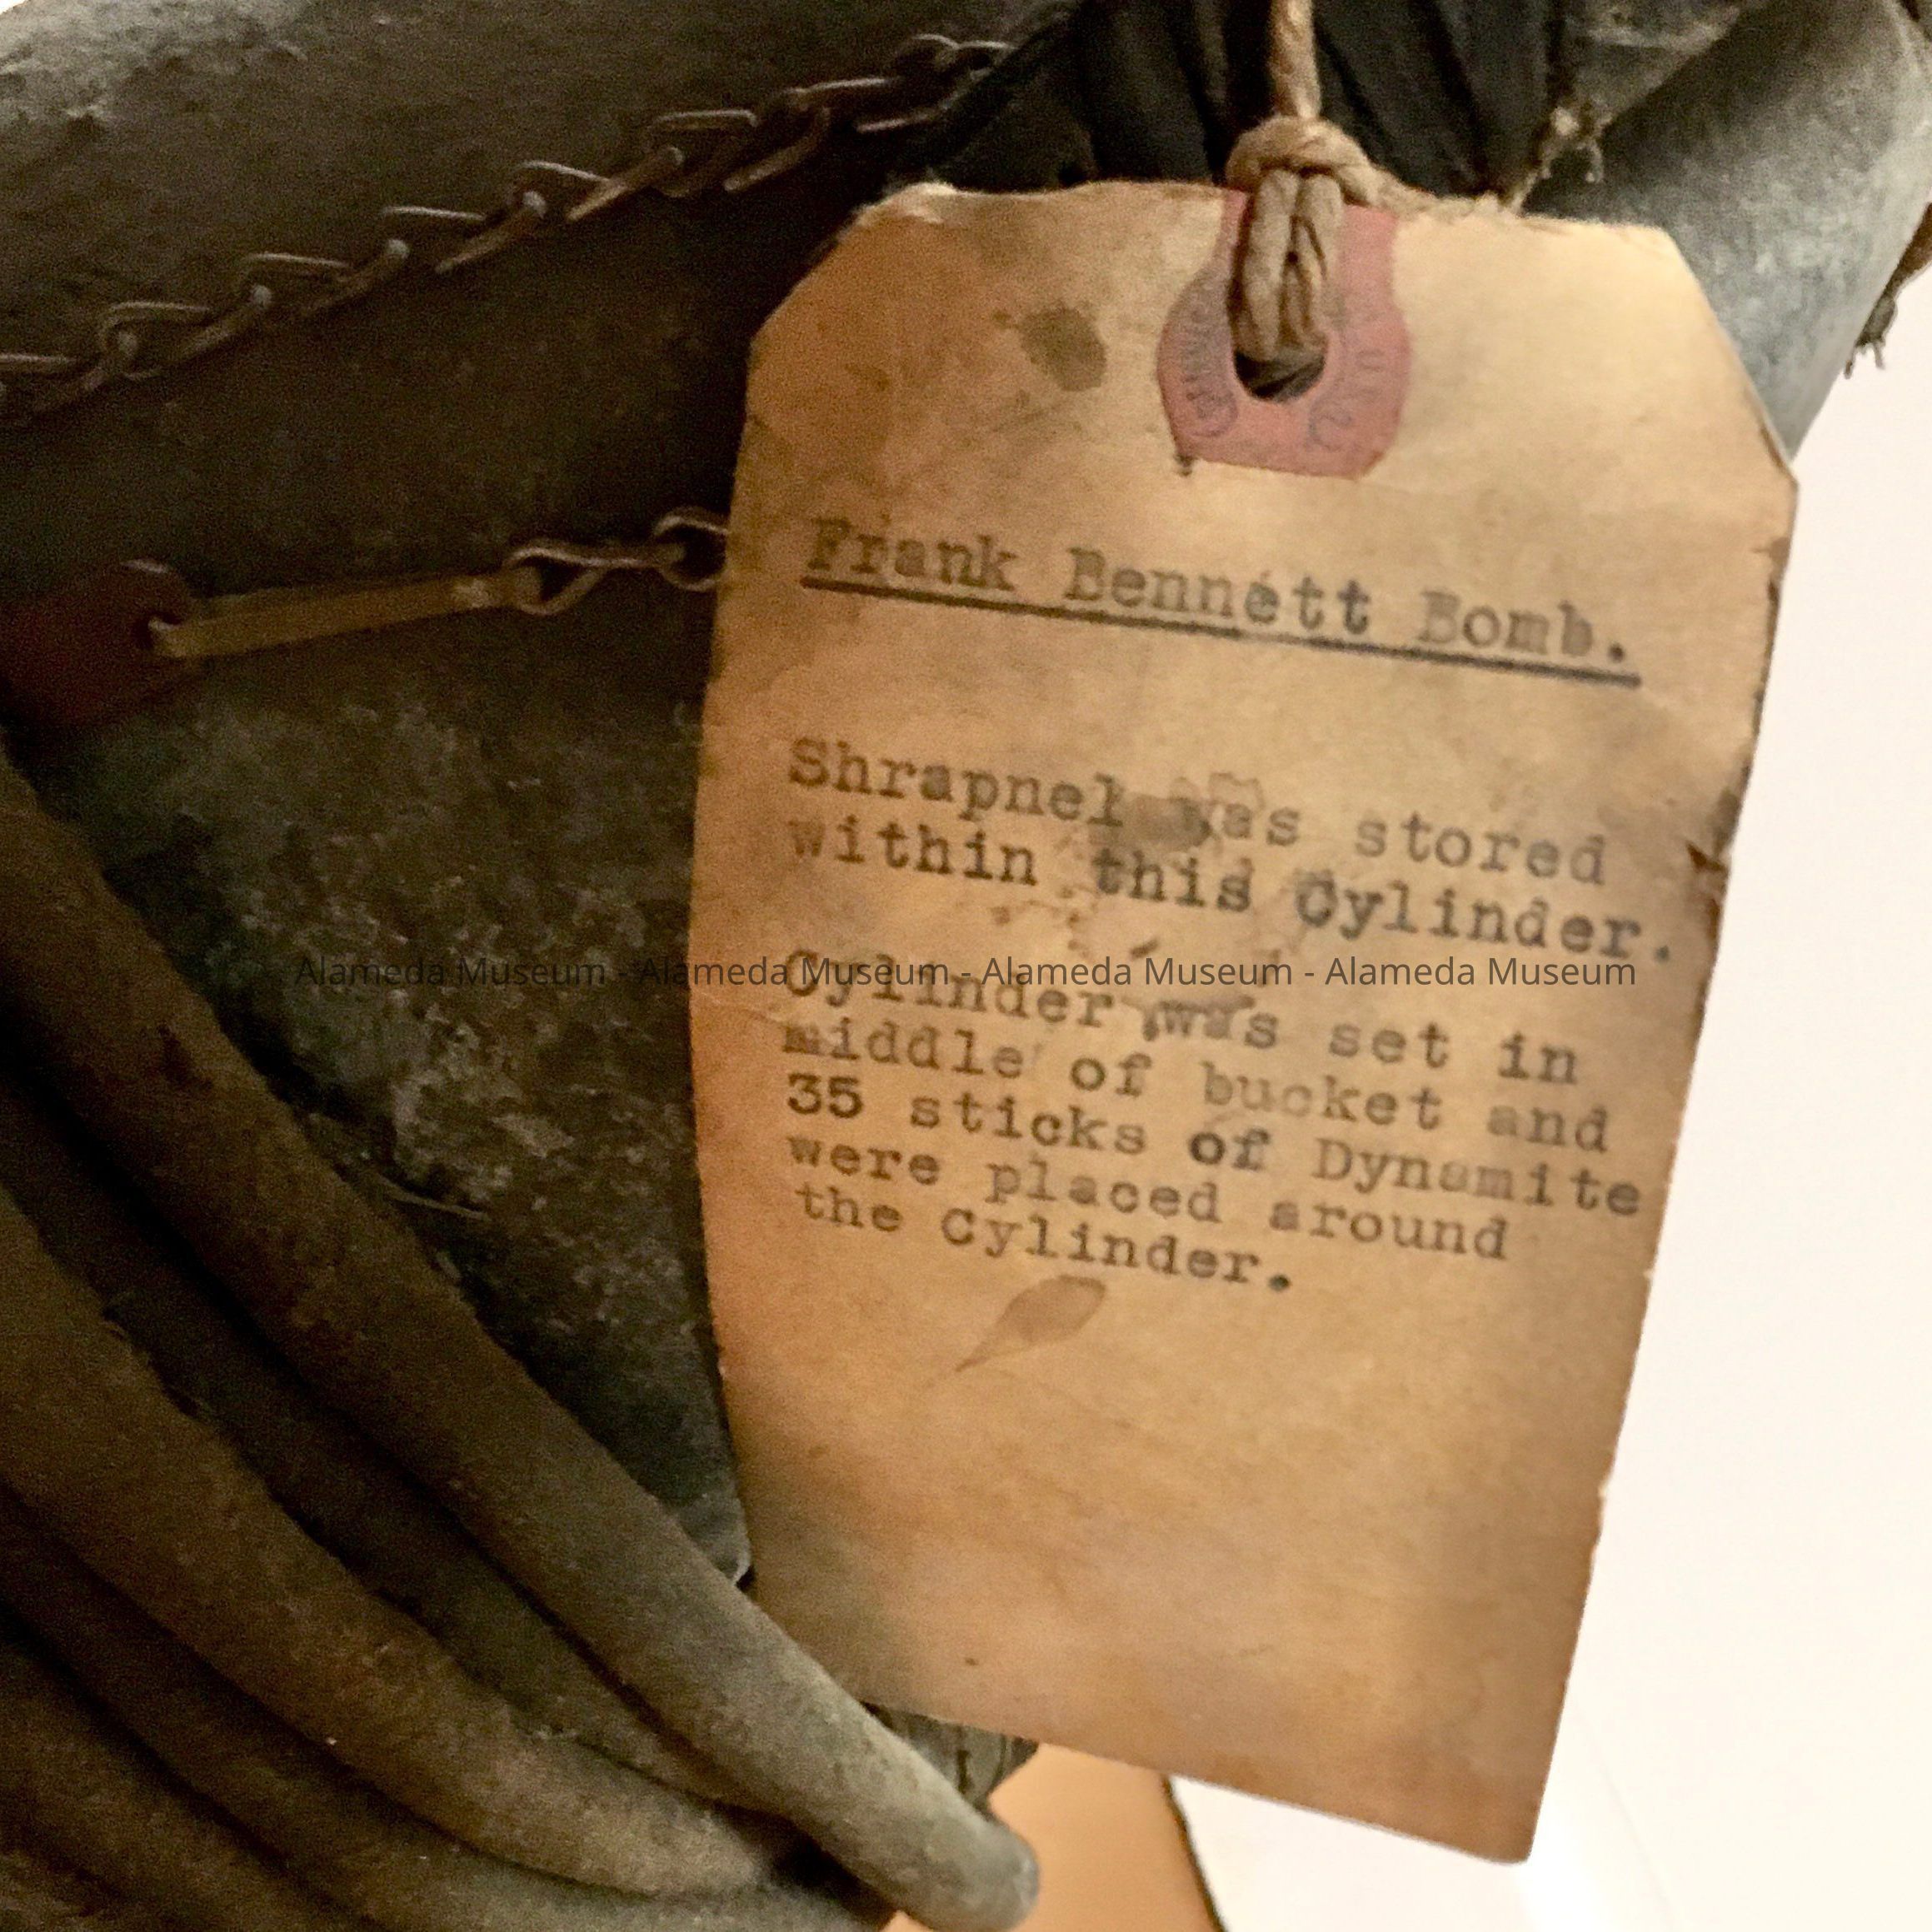 Frank Bennett Bomb.
Shrapnel was stored
within this Cylinder.
Alameda Museum - Alameda Museum - Alameda Museum - Alameda Museum
Cylinder was set in
middle of bucket and
35 sticks of Dynamite
were placed around
the Cylinder.